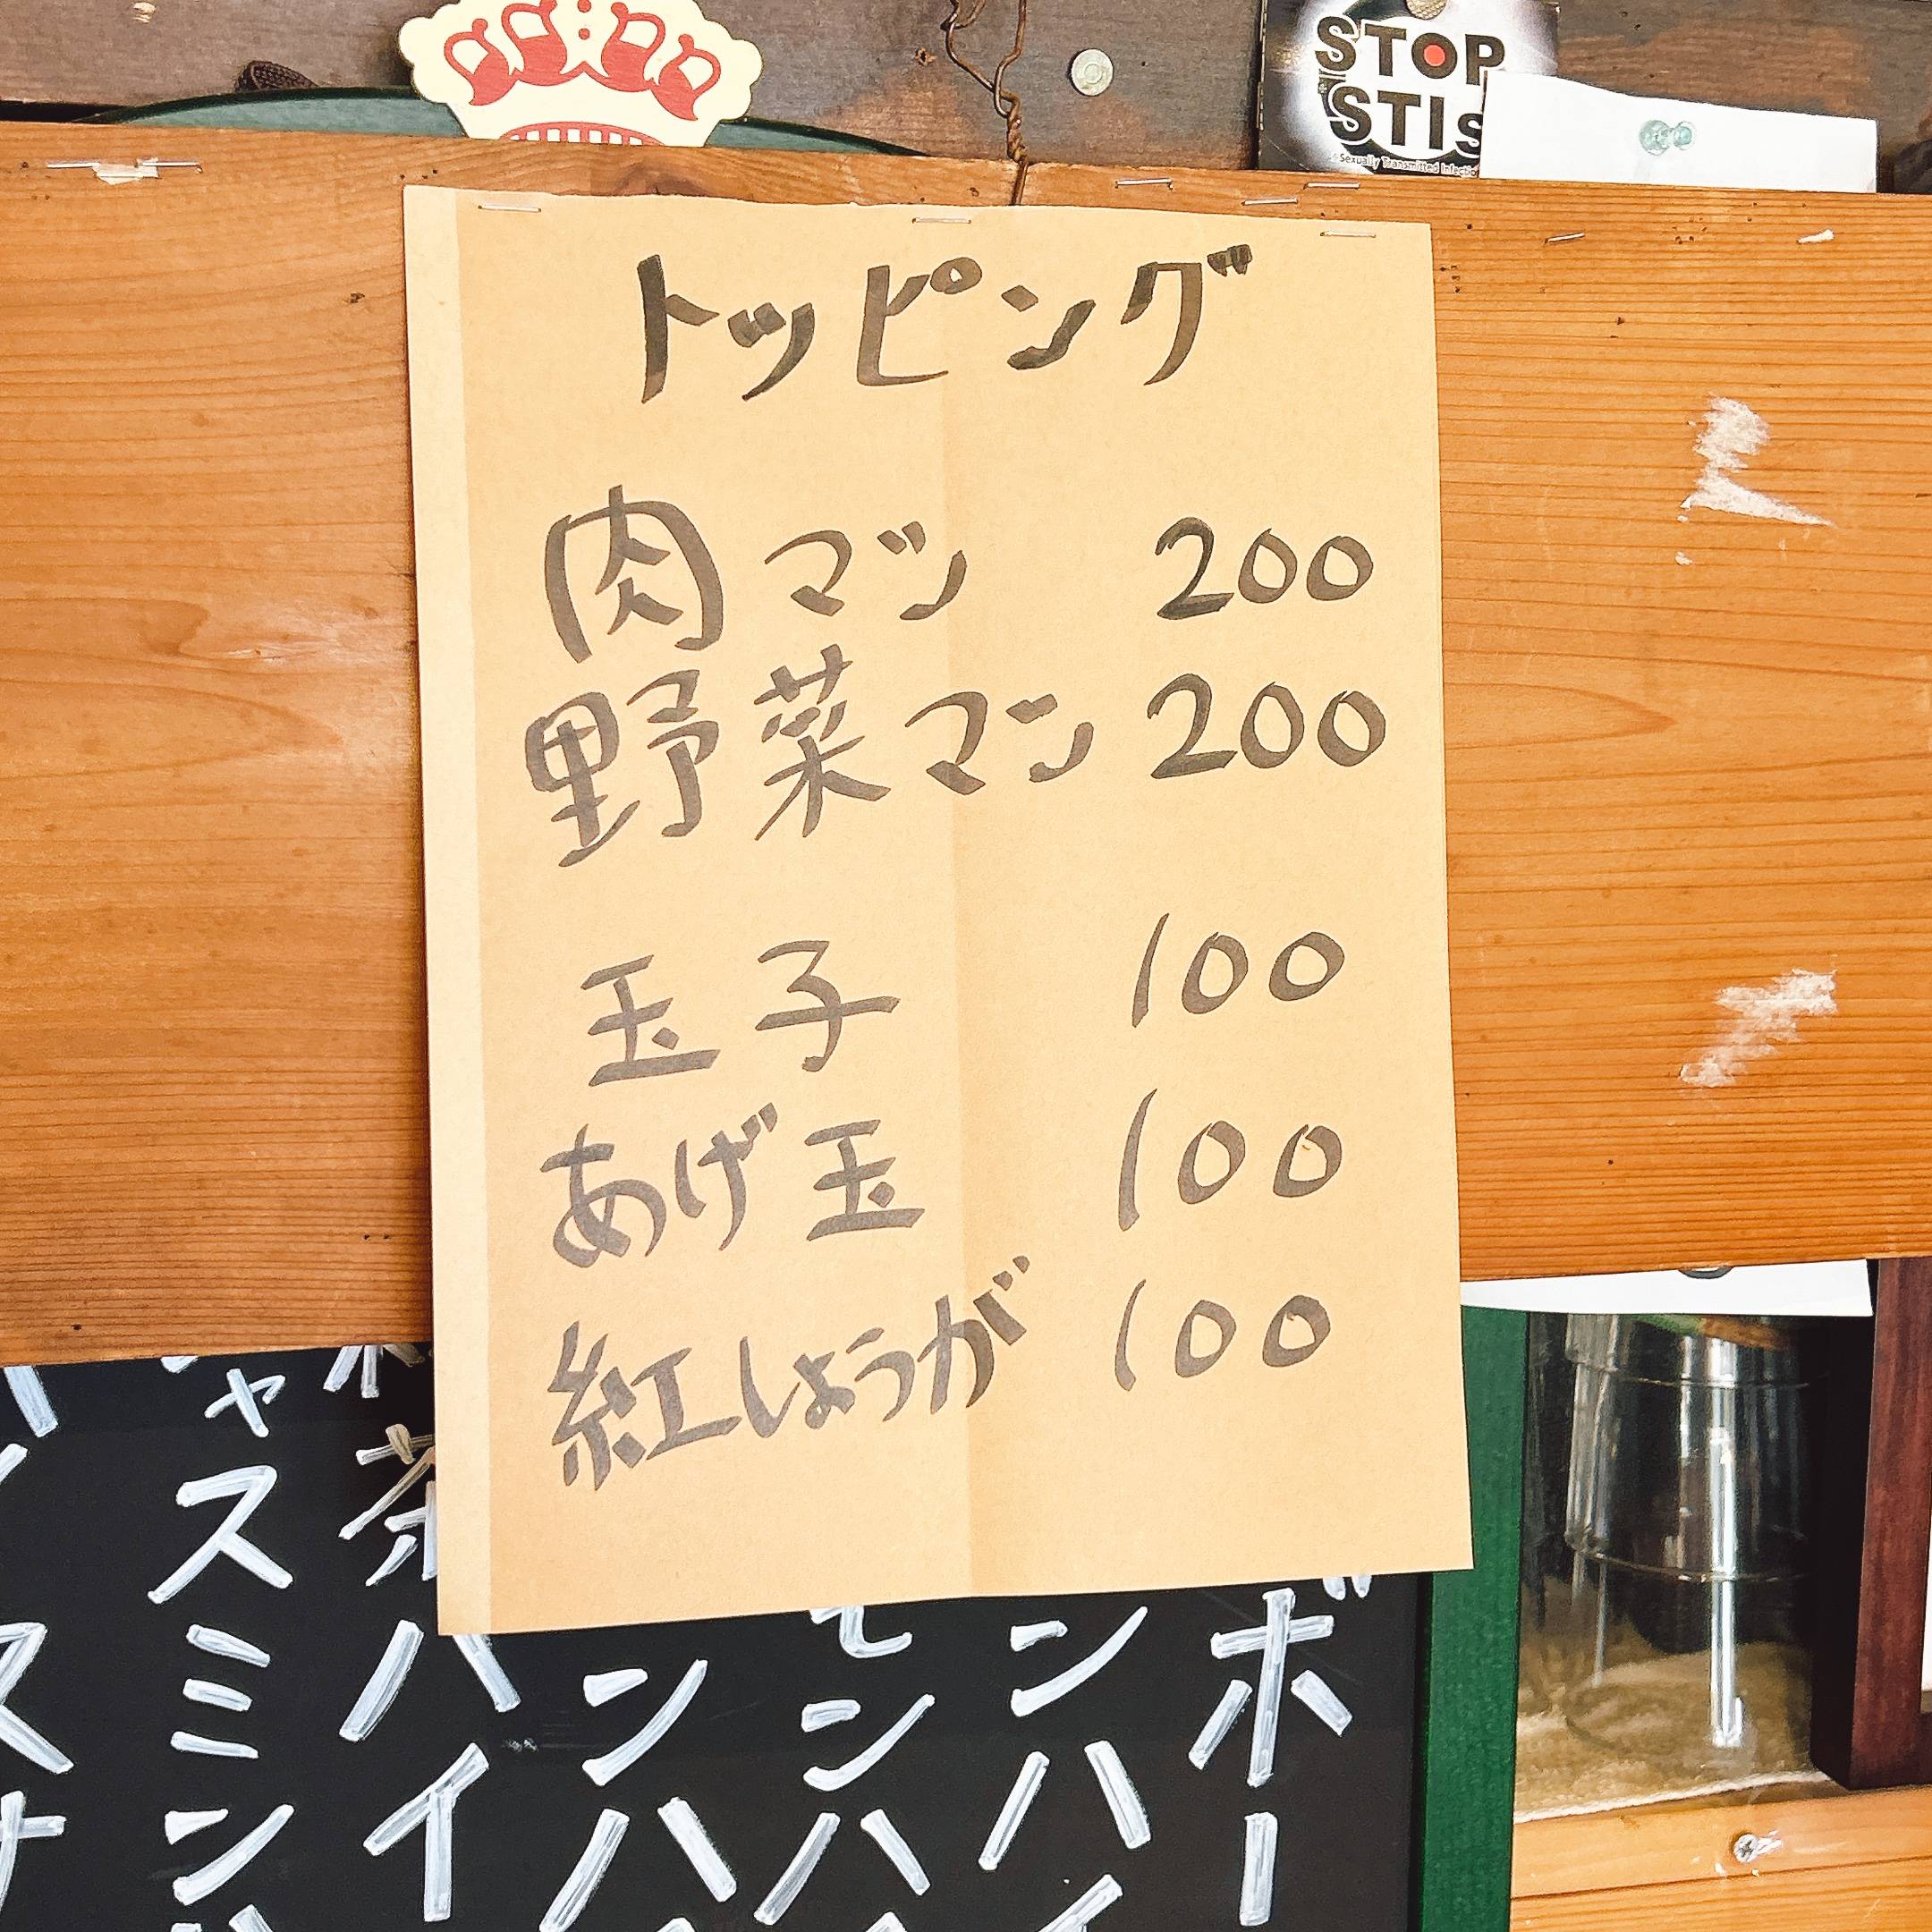 STOP
STIs
Sexually Transmitted Infectio
トッピング
肉マン 200
野菜マン 200
玉子 100
あげ玉 100
紅しょうが 100
ボー
ンハイ
モンハ
ンハ
茶ハイ
ャスミンハ